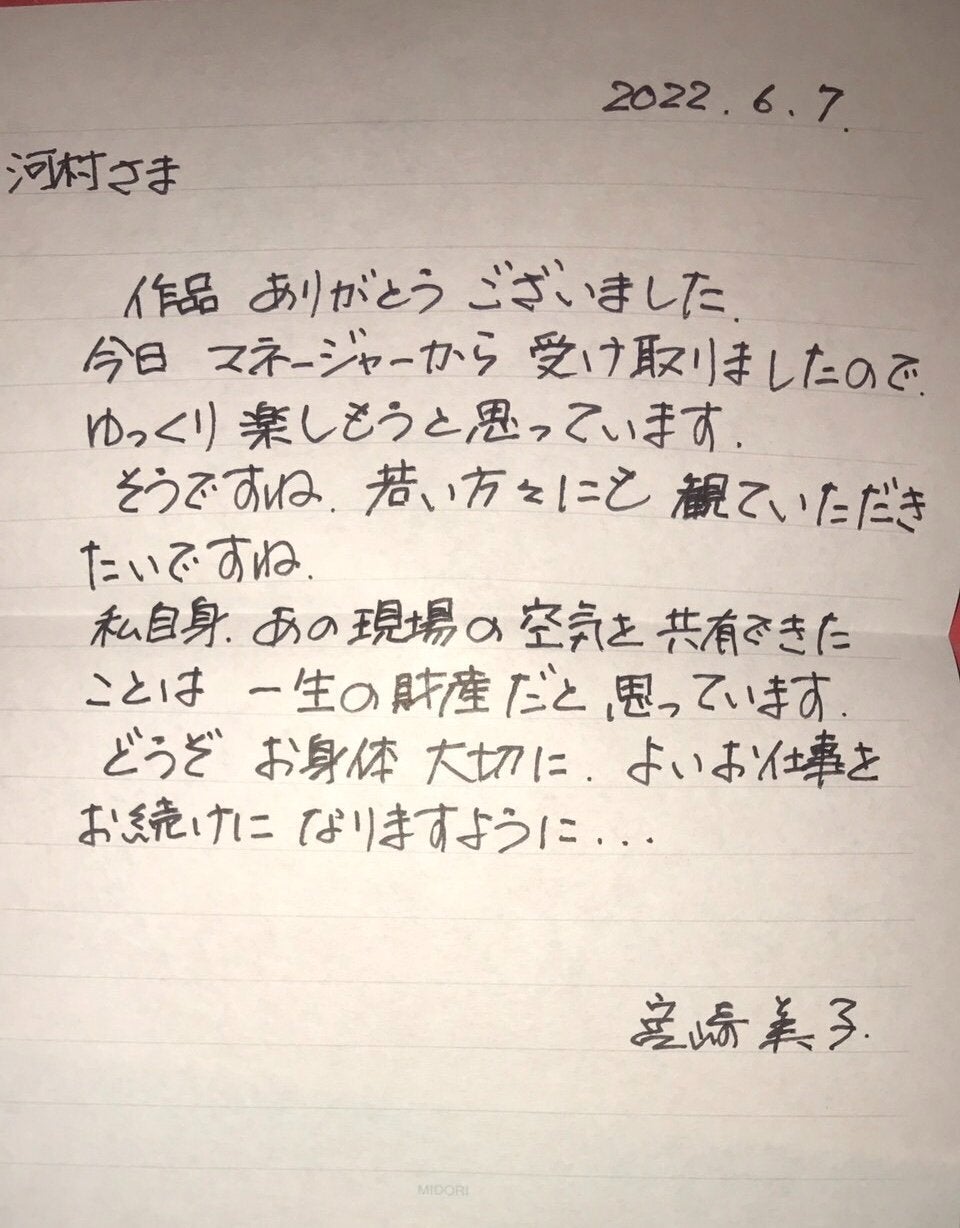 2022.6.7.
河村さま
作品 ありがとう ございました.
今日 マネージャーから 受け取りましたので.
ゆっくり 楽しもうと思っています.
そうですね. 若い方々にも 観ていただき
たいですね.
私自身. あの現場の 空気を 共有できた
ことは 一生の財産だと 思っています.
どうぞ お身体 大切に. よいお仕事を
お続けに なりますように...
宮崎美子.
MIDORI